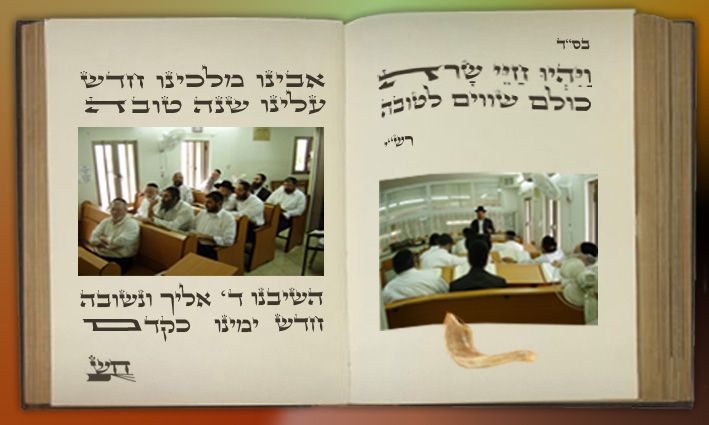 בס״ד
וַיִּהְיוּ חַיֵּי שָׂרָה
כולם שווים לטובה
רש״י
אבינו מלכינו חדש
עלינו שנה טובה
השיבנו ד' אליך ונשובה
חדש ימינו כקדם